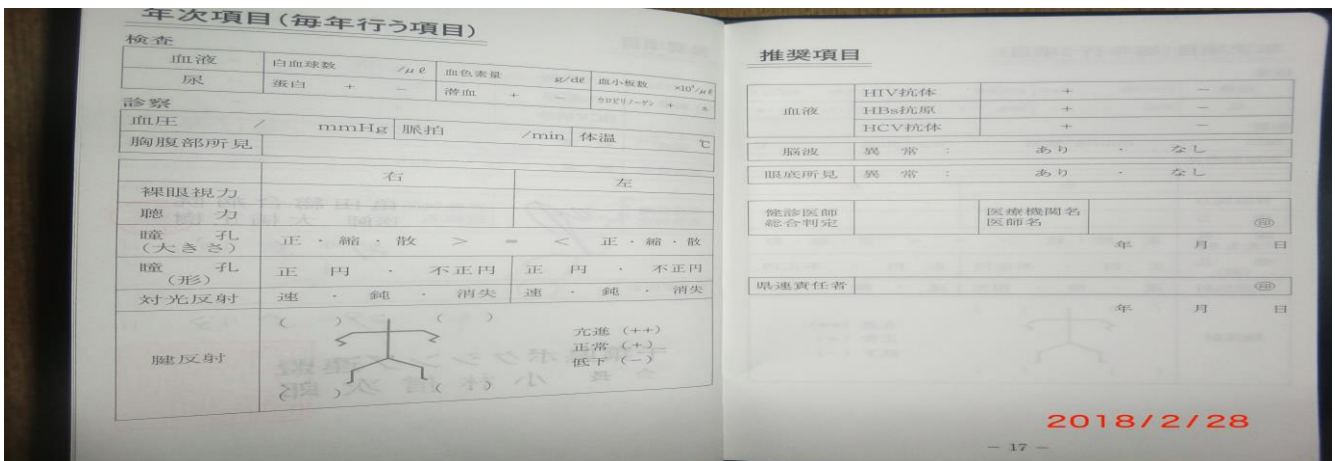 年次項目(毎年行う項目)
検査
血液 白血球数 /μℓ 血色素量 g/dℓ 血小板数 ×10⁴/μℓ
尿 蛋白 + − 潜血 + − ウロビリノーゲン + ±
診察
血圧 / mmHg 脈拍 /min 体温 ℃
胸腹部所見
右 左
裸眼視力
聴力
瞳孔(大きさ) 正・縮・散 > = < 正・縮・散
瞳孔(形) 正円・不正円 正円・不正円
対光反射 速・鈍・消失 速・鈍・消失
( ) ( )
亢進(++)
腱反射 正常(+)
低下(−)
( ) ( )
推奨項目
HIV抗体 + −
血液 HBs抗原 + −
HCV抗体 + −
脳波 異常: あり・なし
眼底所見 異常: あり・なし
健診医師 医療機関名
総合判定 医師名 印
年 月 日
県連責任者 印
年 月 日
2018/2/28
− 17 −